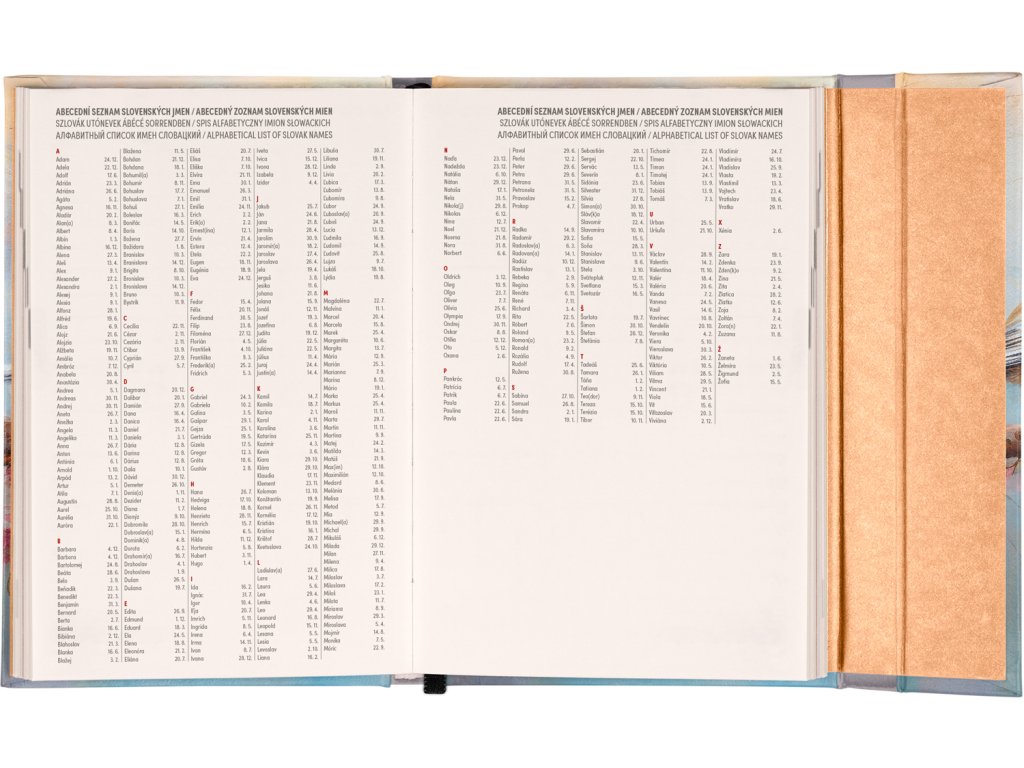 ABECEDNÍ SEZNAM SLOVENSKÝCH JMEN / ABECEDNÝ ZOZNAM SLOVENSKÝCH MIEN
SZLOVÁK UTÓNEVEK ÁBÉCÉ SORRENDBEN / SPIS ALFABETYCZNY IMION SLOWACKICH
АЛФАВИТНЫЙ СПИСОК ИМЕН СЛОВАЦКИЙ / ALPHABETICAL LIST OF SLOVAK NAMES
A
Adam 24. 12.
Adela 23. 12.
Adolf 17. 6.
Adrián 23. 3.
Adriána 26. 6.
Agáta 5. 2.
Agnesa 16. 11.
Aladár 20. 2.
Alan(a) 8. 3.
Albert 8. 4.
Albín 1. 3.
Albína 16. 12.
Alena 27. 3.
Aleš 13. 4.
Alex 9. 1.
Alexander 27. 2.
Alexandra 2. 1.
Alexej 9. 1.
Alexia 9. 1.
Alfonz 28. 1.
Alfréd 19. 6.
Alica 6. 9.
Alojz 21. 6.
Alojzia 23. 10.
Alžbeta 19. 11.
Amália 10. 7.
Ambróz 7. 12.
Anabela 20. 8.
Anastázia 30. 4.
Andrea 5. 1.
Andreas 30. 11.
Andrej 30. 11.
Aneta 26. 7.
Anetka 2. 3.
Angela 11. 3.
Angelika 11. 3.
Anna 26. 7.
Anton 13. 6.
Antónia 6. 1.
Arnold 1. 10.
Arpád 13. 2.
Artur 5. 1.
Atila 7. 1.
Augustín 28. 8.
Aurel 25. 10.
Aurélia 31. 10.
Auróra 22. 1.
B
Barbara 4. 12.
Barbora 4. 12.
Bartolomej 24. 8.
Beáta 28. 6.
Belo 3. 9.
Beňadik 22. 3.
Benedikt 22. 3.
Benjamín 31. 3.
Bernard 20. 5.
Berta 2. 7.
Bianka 16. 6.
Bibiána 2. 12.
Blahoslav 21. 3.
Blanka 16. 6.
Blažej 3. 2.
Blažena 11. 5.
Bohdan 21. 12.
Bohdana 18. 1.
Bohumil(a) 3. 3.
Bohumír 8. 11.
Bohuslav 17. 7.
Bohuslava 7. 1.
Bohuš 27. 1.
Boleslav 16. 3.
Bonifác 14. 5.
Boris 14. 10.
Božena 27. 7.
Božidara 1. 8.
Branislav 10. 3.
Branislava 14. 12.
Brigita 8. 10.
Bronislav 10. 3.
Bronislava 14. 12.
Bruno 10. 3.
Bystrík 11. 9.
C
Cecília 22. 11.
Cézar 2. 11.
Cezária 2. 11.
Ctibor 13. 9.
Cyprián 27. 9.
Cyril 5. 7.
D
Dagmara 20. 12.
Dalibor 20. 1.
Damián 27. 9.
Dana 16. 4.
Danica 16. 4.
Daniel 21. 7.
Daniela 3. 1.
Dária 12. 8.
Darina 12. 8.
Dárius 12. 8.
Daša 19. 1.
Dávid 30. 12.
Demeter 26. 10.
Denis(a) 1. 11.
Dezider 11. 2.
Diana 1. 7.
Dionýz 9. 10.
Dobromila 28. 10.
Dobroslav(a) 15. 1.
Dominik(a) 4. 8.
Dorota 6. 2.
Drahomír(a) 16. 7.
Drahoslav 4. 1.
Drahoslava 1. 9.
Dušan 26. 5.
Dušana 19. 7.
E
Edita 26. 9.
Edmund 1. 12.
Eduard 18. 3.
Ela 24. 5.
Elena 18. 8.
Eleonóra 21. 2.
Elián(a) 20. 7.
Eliáš 20. 7.
Elisa 7. 10.
Eliška 7. 10.
Elvíra 21. 11.
Ema 30. 1.
Emanuel 26. 3.
Emil 31. 1.
Emília 24. 11.
Erich 2. 2.
Erik(a) 2. 2.
Ernest(ína) 12. 1.
Ervín 21. 4.
Estera 12. 4.
Etela 22. 2.
Eugen 18. 11.
Eugénia 18. 9.
Eva 24. 12.
F
Fedor 15. 4.
Félix 20. 11.
Ferdinand 30. 5.
Filip 23. 8.
Filoména 27. 12.
Florián 4. 5.
František 4. 10.
Františka 9. 3.
Frederik(a) 25. 3.
Fridrich 5. 3.
G
Gabriel 24. 3.
Gabriela 10. 2.
Galina 3. 5.
Gašpar 29. 1.
Gejza 25. 1.
Gertrúda 19. 5.
Gizela 17. 5.
Gregor 12. 3.
Gréta 10. 6.
Gustáv 2. 8.
H
Hana 26. 7.
Hedviga 17. 10.
Helena 18. 8.
Henrieta 28. 11.
Henrich 15. 7.
Hermína 6. 5.
Hilda 11. 12.
Hortenzia 5. 8.
Hubert 3. 11.
Hugo 1. 4.
I
Ida 16. 2.
Ignác 31. 7.
Igor 10. 4.
Iľja 20. 7.
Imrich 5. 11.
Ingrida 8. 5.
Irena 6. 4.
Irma 14. 11.
Ivan 8. 7.
Ivana 28. 12.
Iveta 27. 5.
Ivica 15. 12.
Ivona 28. 12.
Izabela 9. 12.
Izidor 4. 4.
J
Jakub 25. 7.
Ján 24. 6.
Jana 21. 8.
Jarmila 28. 4.
Jarolím 30. 9.
Jaromír(a) 18. 2.
Jaroslav 27. 4.
Jaroslava 26. 4.
Jela 19. 4.
Jerguš 3. 8.
Jesika 11. 6.
Johana 21. 8.
Jolana 15. 9.
Jonáš 12. 11.
Jozef 19. 3.
Jozefína 6. 8.
Judita 19. 12.
Júlia 22. 5.
Juliána 22. 5.
Július 11. 4.
Juraj 24. 4.
Justín(a) 14. 4.
K
Kamil 14. 7.
Kamila 18. 7.
Karina 2. 1.
Karol 4. 11.
Karolína 3. 6.
Katarína 25. 11.
Kazimír 4. 3.
Kevin 3. 6.
Kiara 29. 10.
Klára 29. 10.
Klaudia 17. 11.
Klement 23. 11.
Koloman 13. 10.
Konštantín 19. 9.
Kornel 26. 11.
Kornélia 17. 12.
Kristián 19. 10.
Kristína 16. 1.
Krištof 28. 7.
Kvetoslava 24. 10.
L
Ladislav(a) 27. 6.
Lara 14. 7.
Laura 5. 6.
Lea 29. 4.
Lenka 4. 6.
Leo 29. 4.
Leonard 16. 8.
Leopold 15. 11.
Lesana 5. 5.
Lesia 5. 5.
Levoslav 2. 10.
Liana 16. 2.
Libuša 30. 7.
Liliana 19. 11.
Linda 2. 9.
Lívia 20. 2.
Ľubica 17. 3.
Ľubomír 13. 8.
Ľubomíra 9. 8.
Ľubor 24. 9.
Ľuboslav(a) 20. 9.
Ľuboš 24. 9.
Lucia 13. 12.
Ľudmila 16. 9.
Ľudomil 14. 9.
Ľudovít 25. 8.
Lujza 9. 7.
Lukáš 18. 10.
Lýdia 2. 8.
M
Magdaléna 22. 7.
Malvína 11. 1.
Marcel 20. 4.
Marcela 15. 8.
Marek 25. 4.
Margaréta 10. 6.
Margita 13. 7.
Mária 12. 9.
Marián 25. 3.
Marianna 7. 9.
Marina 8. 12.
Mário 19. 1.
Marka 25. 4.
Markus 25. 4.
Maroš 11. 11.
Marta 29. 7.
Martin 11. 11.
Martina 9. 9.
Matej 24. 2.
Matilda 14. 3.
Matúš 21. 9.
Max(im) 12. 10.
Maximilián 12. 10.
Medard 8. 6.
Melánia 30. 6.
Melisa 17. 9.
Metod 5. 7.
Mia 12. 9.
Michael(a) 29. 9.
Michal 29. 9.
Mikuláš 6. 12.
Milada 29. 12.
Milan 27. 11.
Milena 9. 4.
Milica 17. 8.
Miloslav 3. 7.
Miloslava 17. 2.
Miloš 23. 1.
Milota 11. 7.
Miriama 8. 9.
Miroslav 29. 3.
Miroslava 5. 4.
Mojmír 14. 8.
Monika 7. 5.
Móric 22. 9.
ABECEDNÍ SEZNAM SLOVENSKÝCH JMEN / ABECEDNÝ ZOZNAM SLOVENSKÝCH MIEN
SZLOVÁK UTÓNEVEK ÁBÉCÉ SORRENDBEN / SPIS ALFABETYCZNY IMION SLOWACKICH
АЛФАВИТНЫЙ СПИСОК ИМЕН СЛОВАЦКИЙ / ALPHABETICAL LIST OF SLOVAK NAMES
N
Naďa 23. 12.
Nadežda 23. 12.
Natália 6. 10.
Nátan 29. 12.
Nataša 17. 1.
Nela 31. 5.
Nikola(j) 29. 8.
Nikolas 6. 12.
Nina 12. 7.
Noel 21. 12.
Noema 21. 8.
Nora 31. 8.
Norbert 6. 6.
O
Oldrich 3. 12.
Oleg 10. 9.
Oľga 23. 7.
Oliver 7. 7.
Olívia 25. 6.
Olympia 17. 9.
Ondrej 30. 11.
Oskar 8. 8.
Otília 12. 12.
Oto 5. 12.
Oxana 2. 6.
P
Pankrác 12. 5.
Patrícia 6. 7.
Patrik 6. 7.
Paula 22. 6.
Paulína 22. 6.
Pavla 22. 6.
Pavol 29. 6.
Perla 12. 2.
Peter 29. 6.
Petra 29. 6.
Petrana 31. 5.
Petronela 31. 5.
Pravoslav 15. 2.
Prokop 4. 7.
R
Radka 14. 9.
Radomír 29. 2.
Radoslav(a) 6. 3.
Radovan(a) 14. 1.
Radúz 10. 12.
Rastislav 13. 1.
Rebeka 2. 9.
Regína 5. 9.
Renáta 6. 11.
René 7. 11.
Richard 3. 4.
Rita 22. 5.
Róbert 7. 6.
Roland 9. 5.
Roman(a) 23. 2.
Ronald 9. 2.
Rozália 4. 9.
Rudolf 17. 4.
Ružena 30. 8.
S
Sabína 27. 10.
Samuel 26. 8.
Sandra 2. 1.
Sára 19. 1.
Sebastián 20. 1.
Sergej 22. 10.
Servác 13. 5.
Severín 8. 1.
Sidónia 23. 6.
Silvester 31. 12.
Silvia 27. 8.
Simon(a) 30. 10.
Sláv(k)a 18. 12.
Slavomír 22. 4.
Slavomíra 10. 10.
Sofia 15. 5.
Soňa 28. 3.
Stanislav 13. 11.
Stanislava 9. 6.
Stela 3. 10.
Svätopluk 12. 11.
Svetlana 15. 3.
Svetozár 16. 5.
Š
Šarlota 19. 7.
Šimon 30. 10.
Štefan 26. 12.
Štefánia 7. 8.
T
Tadeáš 25. 6.
Tamara 26. 1.
Táňa 1. 2.
Tatiana 1. 2.
Teo(dor) 9. 11.
Tereza 15. 10.
Terézia 15. 10.
Tibor 10. 11.
Tichomír 22. 8.
Timea 24. 1.
Timon 24. 1.
Timotej 24. 1.
Tobias 13. 9.
Tobiáš 13. 9.
Tomáš 7. 3.
U
Urban 25. 5.
Uršuľa 21. 10.
V
Václav 28. 9.
Valentín 14. 2.
Valentína 11. 10.
Valér 18. 4.
Valéria 20. 6.
Vanda 7. 2.
Vanesa 24. 5.
Vasil 14. 6.
Vavrinec 10. 8.
Vendelín 20. 10.
Veronika 4. 2.
Viera 5. 10.
Vieroslava 30. 3.
Viktor 26. 2.
Viktória 10. 5.
Viliam 28. 5.
Vilma 29. 5.
Vincent 21. 1.
Viola 18. 5.
Vít 15. 6.
Víťazoslav 20. 3.
Viviána 2. 12.
Vladimír 24. 7.
Vladimíra 16. 10.
Vladislav 25. 9.
Vlasta 19. 2.
Vlastimil 13. 3.
Vojtech 23. 4.
Vratislav 18. 6.
Vratko 29. 11.
X
Xénia 2. 6.
Z
Zara 19. 1.
Zdenka 23. 9.
Zden(k)o 9. 2.
Zina 21. 5.
Zita 2. 4.
Zlatica 28. 2.
Zlatko 12. 6.
Zoja 8. 2.
Zoltán 7. 4.
Zora(n) 22. 1.
Zuzana 11. 8.
Ž
Žaneta 1. 6.
Želmíra 23. 5.
Žigmund 2. 5.
Žofia 15. 5.